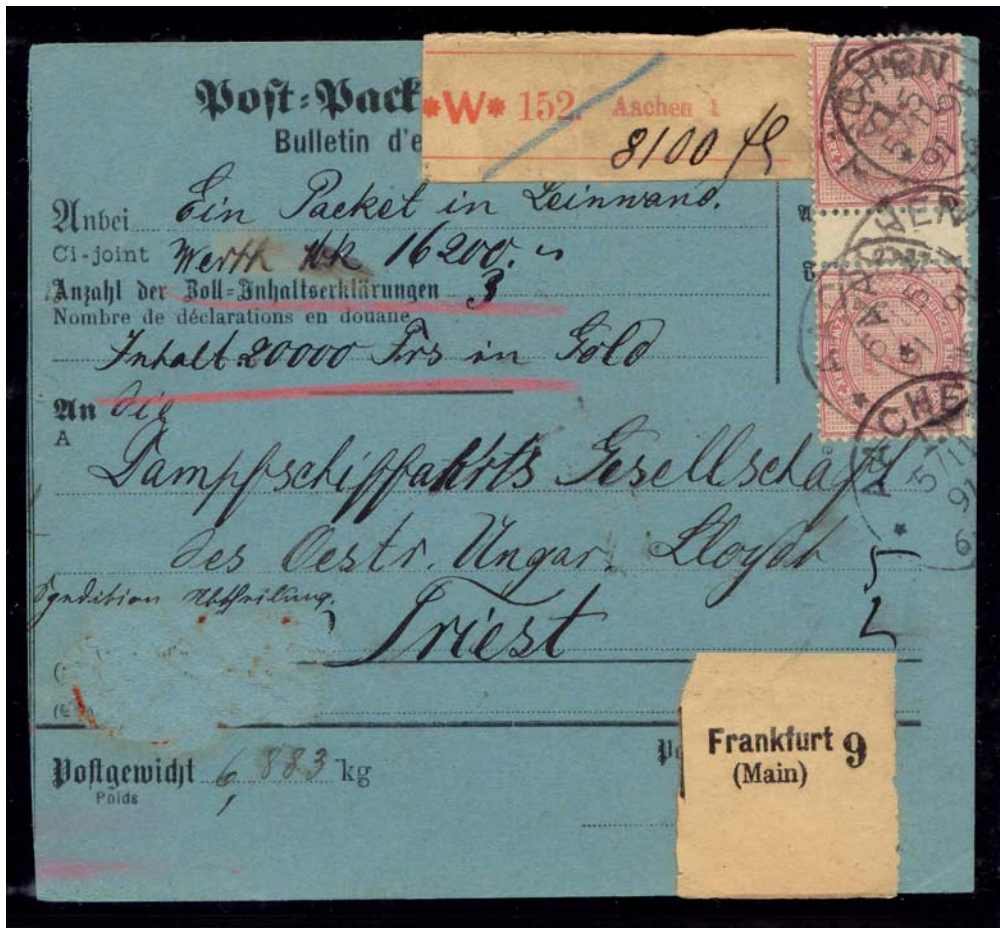 Post-Pack
Bulletin d'e
*W* 152. Aachen 1
8100 fl
Anbei Ein Packet in Leinwand.
Ci-joint Werth Mk 16200.
Anzahl der Zoll-Inhaltserklärungen 3
Nombre de déclarations en douane
Inhalt 20000 Frs in Gold
An die
A
Dampfschiffahrts Gesellschaft
des Oestr. Ungar. Lloyds
Spedition Abtheilung.
Triest
Postgewicht 6,883 kg
Poids
Frankfurt 9
(Main)
AACHEN
5
91
AACHEN
5
91
AACHEN
5/11
91
6